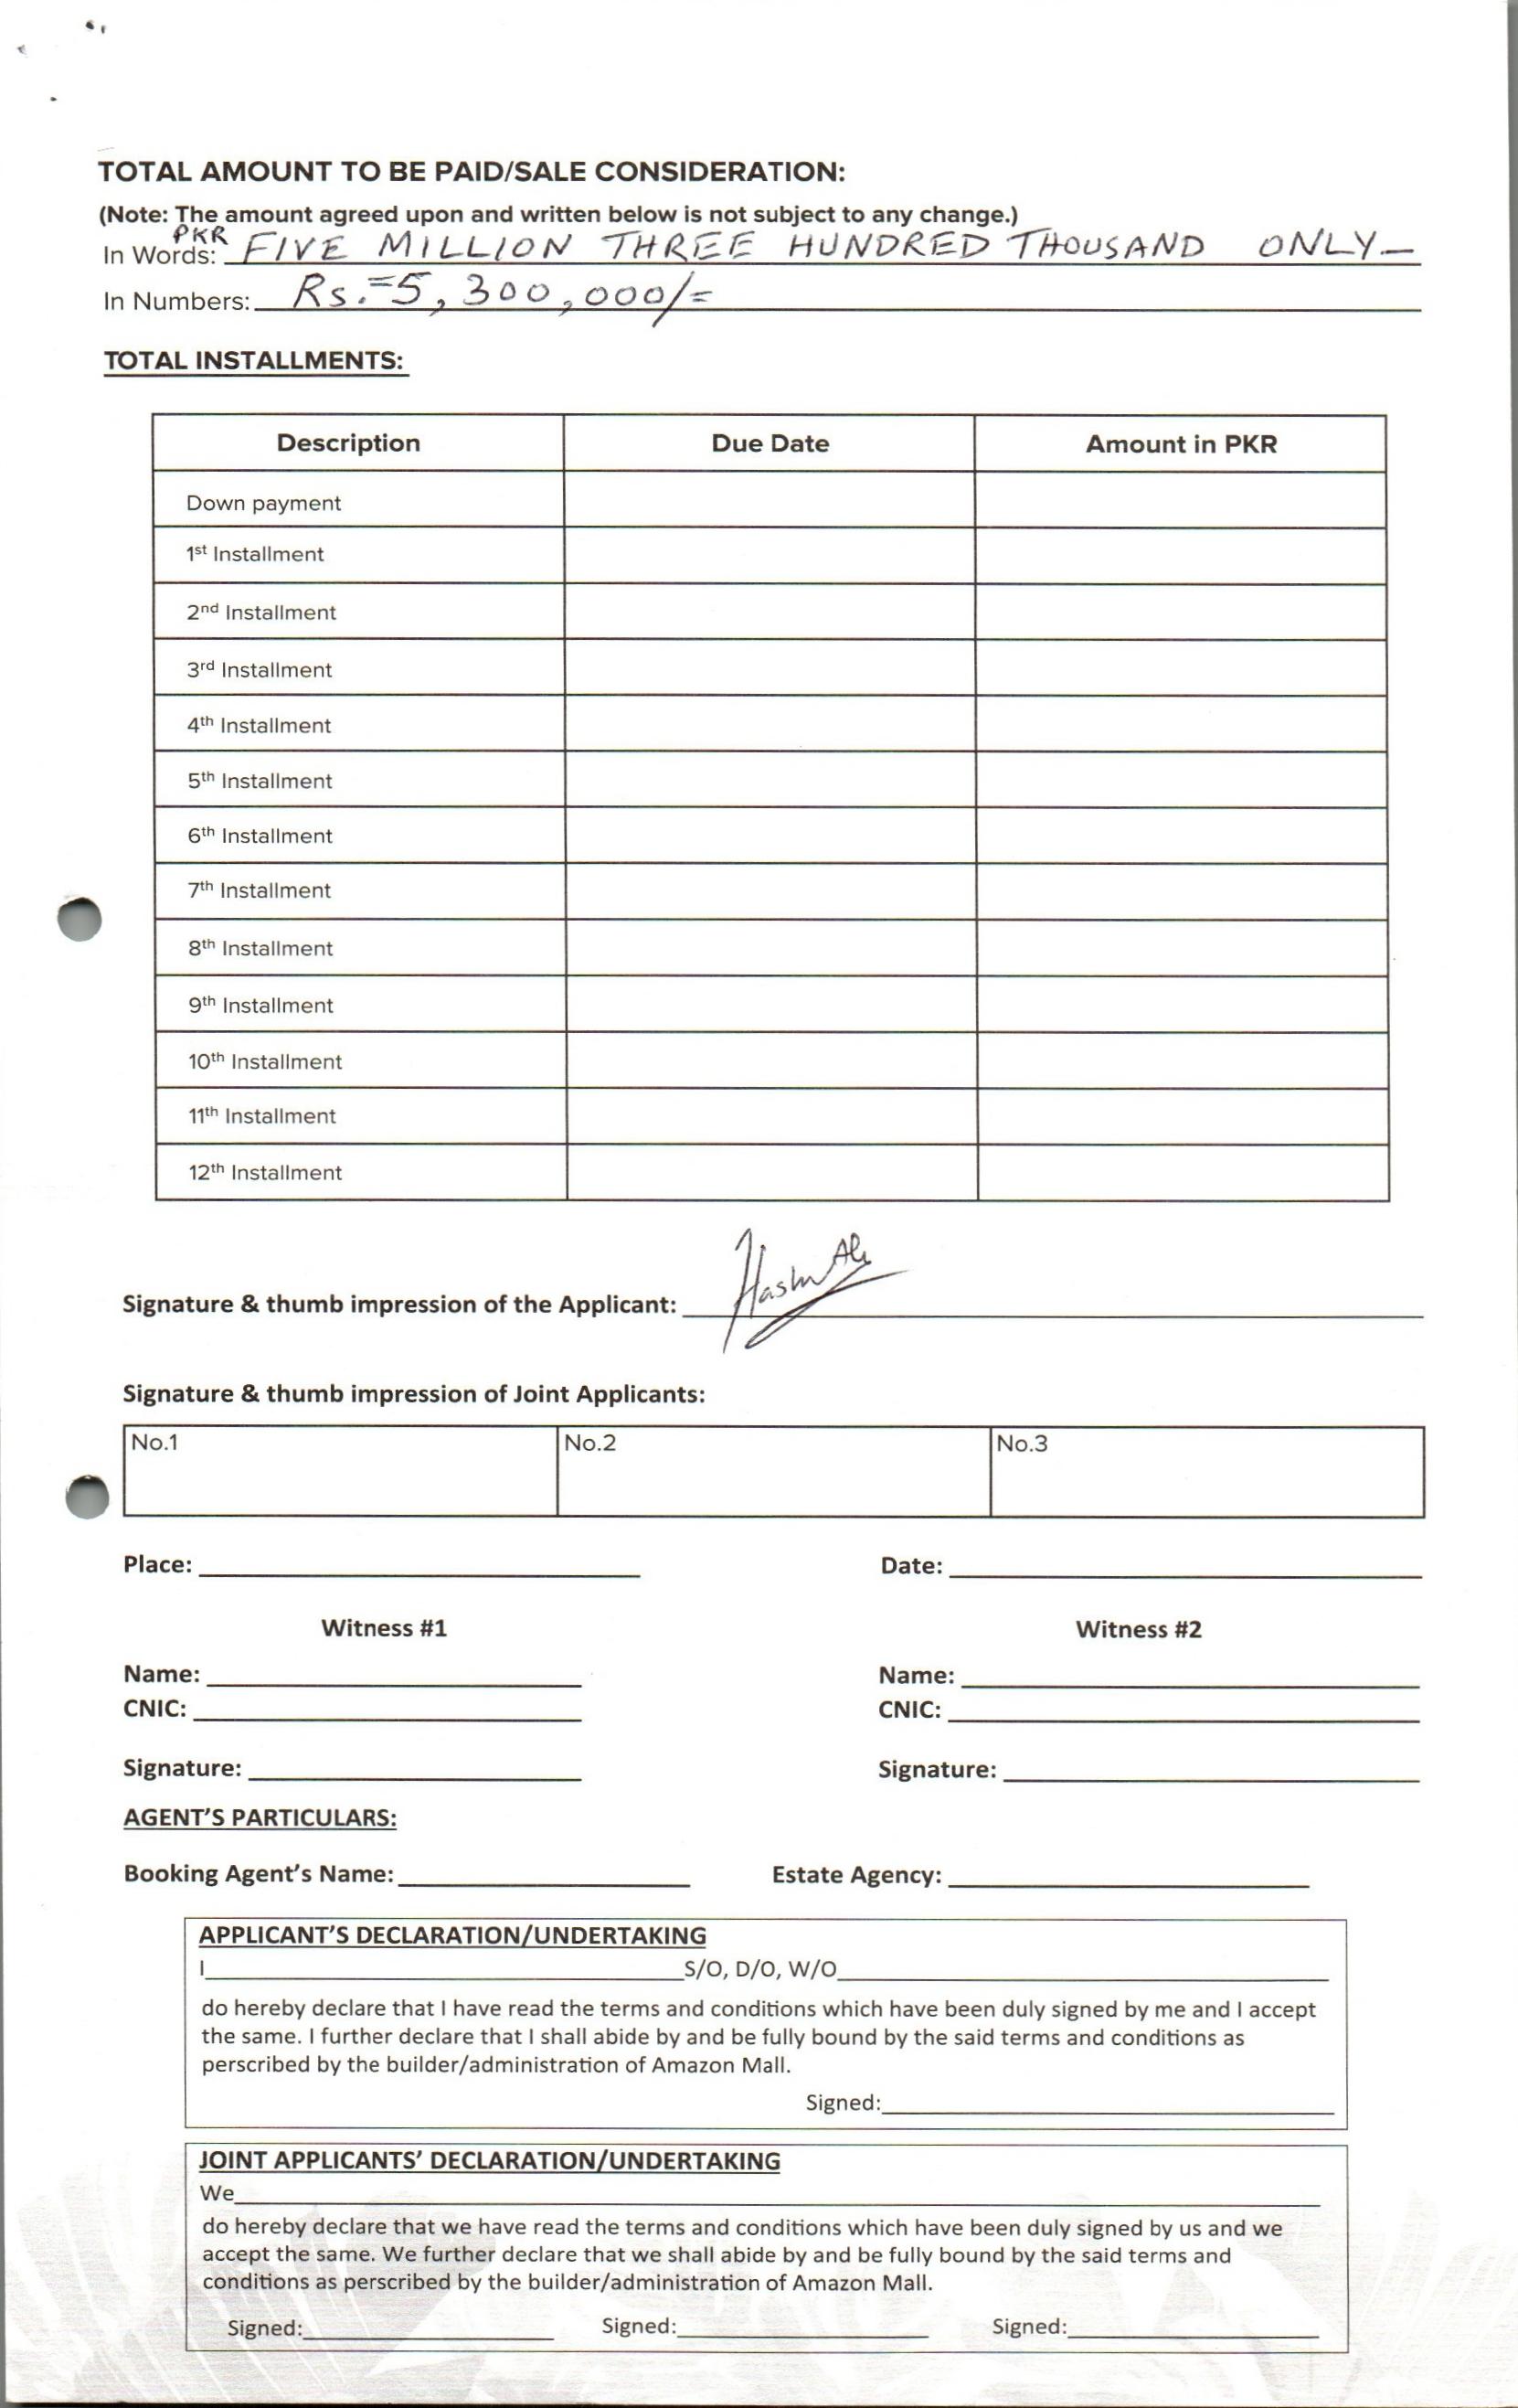 TOTAL AMOUNT TO BE PAID/SALE CONSIDERATION:
(Note: The amount agreed upon and written below is not subject to any change.)
PKR
In Words: FIVE MILLION THREE HUNDRED THOUSAND ONLY—
In Numbers: Rs.=5,300,000/=
TOTAL INSTALLMENTS:
Description Due Date Amount in PKR
Down payment
1st Installment
2nd Installment
3rd Installment
4th Installment
5th Installment
6th Installment
7th Installment
8th Installment
9th Installment
10th Installment
11th Installment
12th Installment
Signature & thumb impression of the Applicant: Hashm Ali
Signature & thumb impression of Joint Applicants:
No.1 No.2 No.3
Place: Date:
Witness #1 Witness #2
Name: Name:
CNIC: CNIC:
Signature: Signature:
AGENT'S PARTICULARS:
Booking Agent's Name: Estate Agency:
APPLICANT'S DECLARATION/UNDERTAKING
I S/O, D/O, W/O
do hereby declare that I have read the terms and conditions which have been duly signed by me and I accept
the same. I further declare that I shall abide by and be fully bound by the said terms and conditions as
perscribed by the builder/administration of Amazon Mall.
Signed:
JOINT APPLICANTS' DECLARATION/UNDERTAKING
We
do hereby declare that we have read the terms and conditions which have been duly signed by us and we
accept the same. We further declare that we shall abide by and be fully bound by the said terms and
conditions as perscribed by the builder/administration of Amazon Mall.
Signed: Signed: Signed: